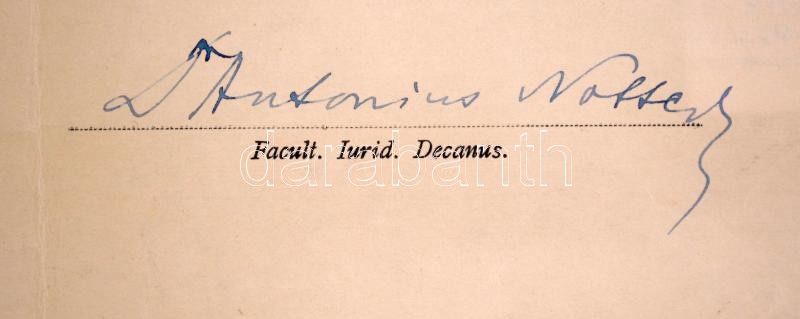 Dr Antonius Notter
Facult. Iurid. Decanus.
darabanth